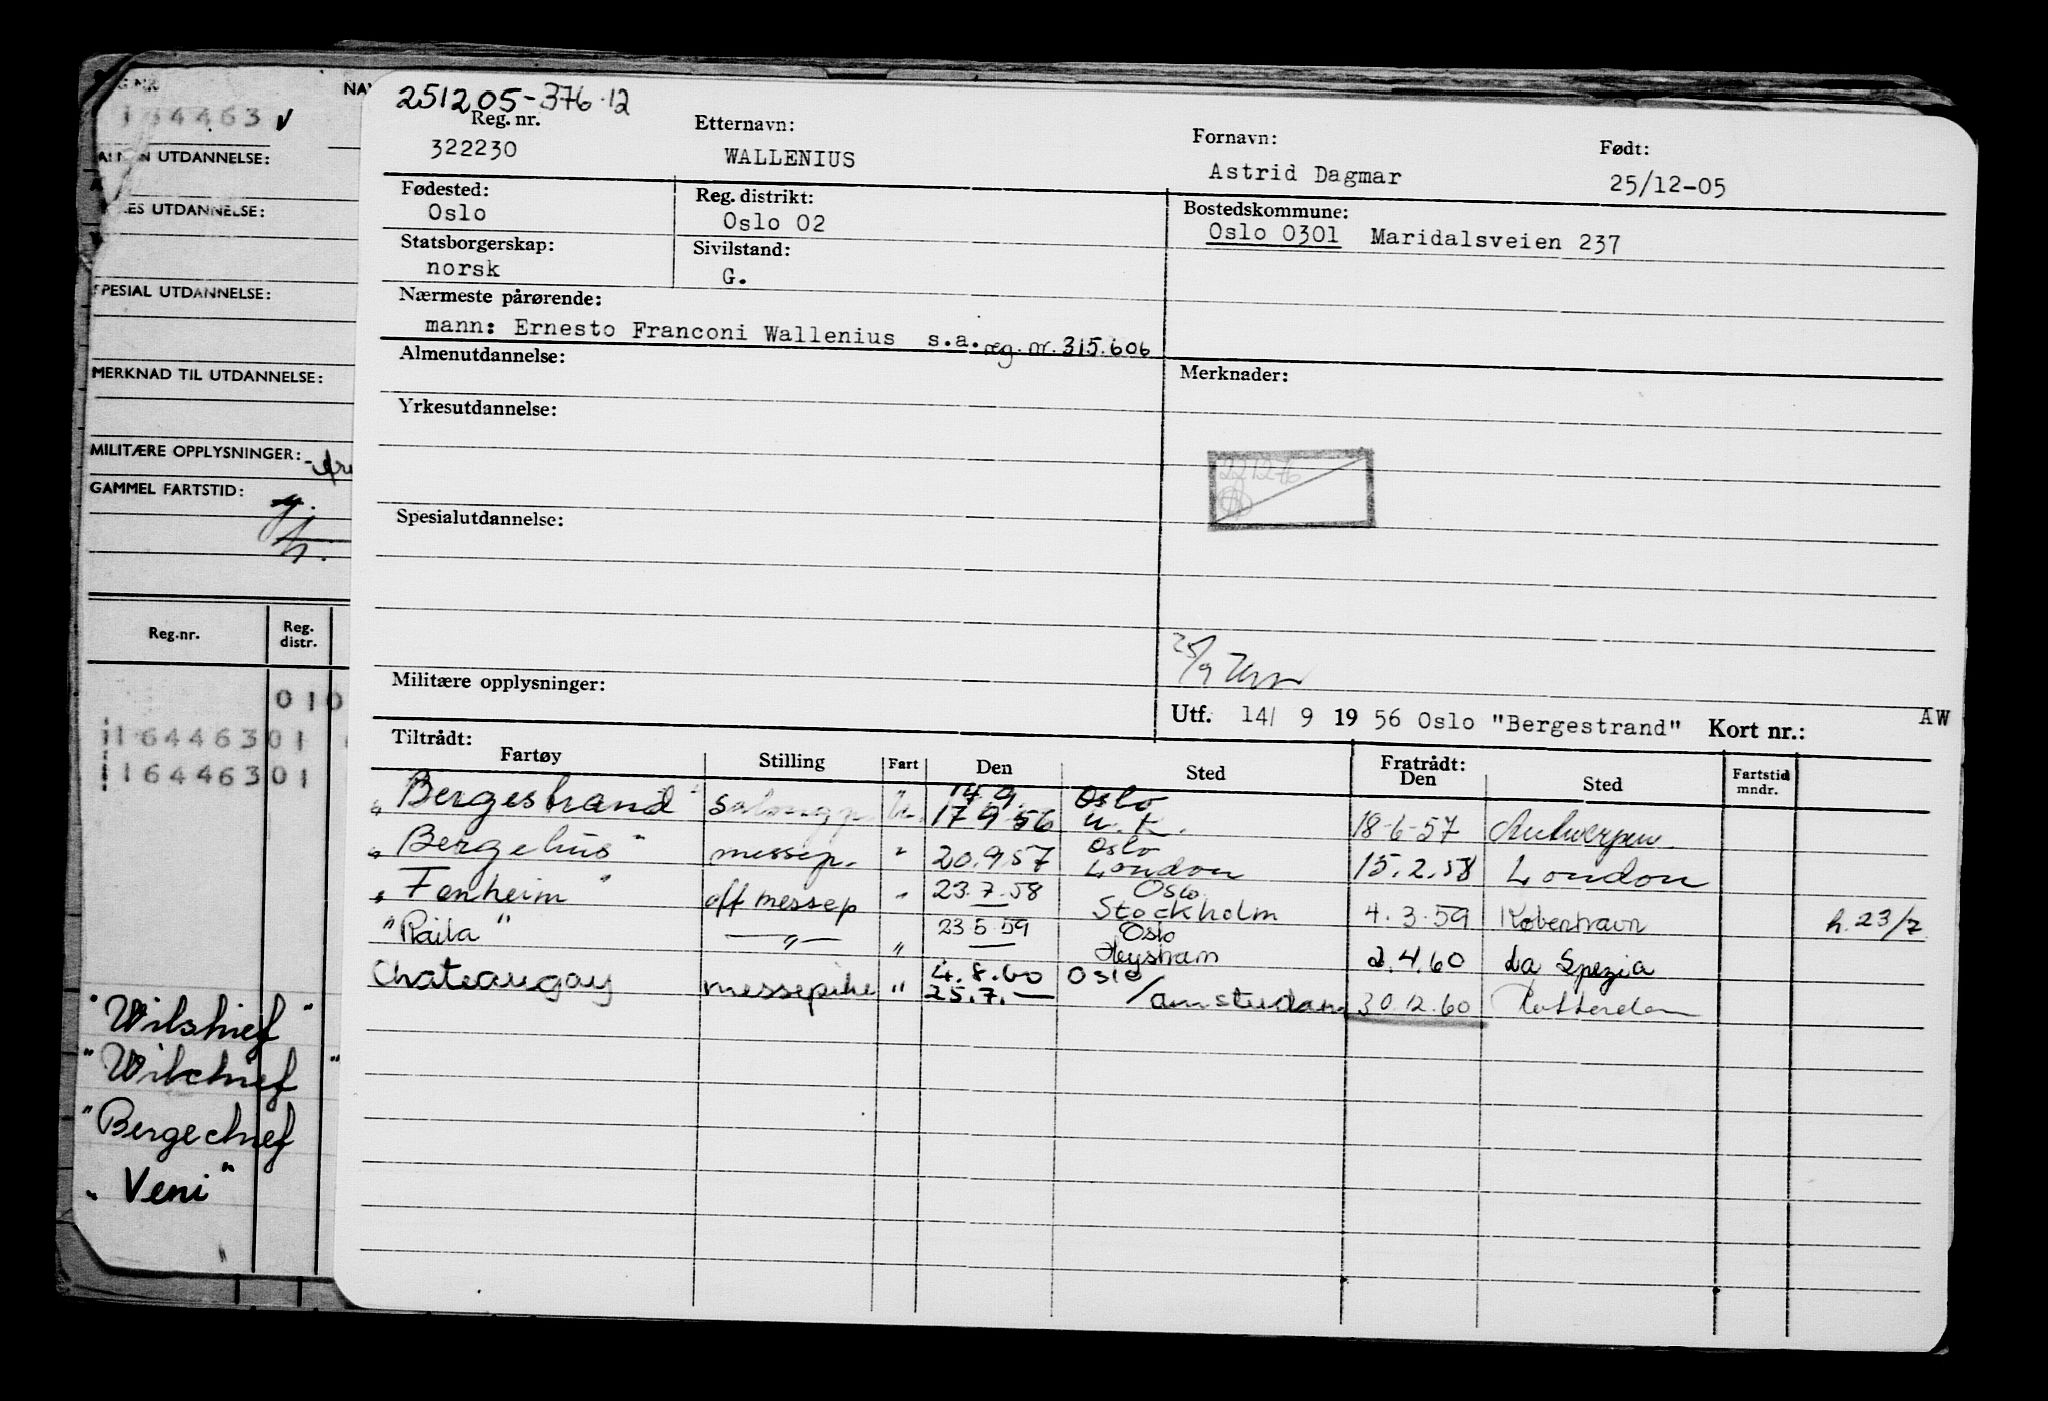 251205-376.12
Reg. nr.
322230
Etternavn:
WALLENIUS
Fornavn:
Astrid Dagmar
Født:
25/12-05
Fødested:
Oslo
Reg. distrikt:
Oslo 02
Bostedskommune:
Oslo 0301 Maridalsveien 237
Statsborgerskap:
norsk
Sivilstand:
G.
Nærmeste pårørende:
mann: Ernesto Franconi Wallenius s.a. reg. nr. 315.606
Almenutdannelse:
Merknader:
Yrkesutdannelse:
221276
Spesialutdannelse:
25/9
Militære opplysninger:
Utf. 14/ 9 19 56 Oslo "Bergestrand" Kort nr.: AW
Tiltrådt:
Fartøy Stilling Fart Den Sted Fratrådt: Den Sted Fartstid mndr.
14.9. Oslo
"Bergestrand" salongp. 17.9.56 U.K. 18-6-57 Antwerpen
Oslo
"Bergehus" messep. " 20.9.57 London 15.2.58 London
23.7.58 Oslo
"Fenheim" off messep " Stockholm 4.3.59 København h. 23/7
23.5.59 Oslo
"Raila" —"— " Heysham 2.4.60 La Spezia
4.8.60 Oslo
Chateaugay messepike " 25.7.— / Amsterdam 30.12.60 Rotterdam
REG.NR.
164463 ✓
NAV
ALMEN UTDANNELSE:
YRKES UTDANNELSE:
SPESIAL UTDANNELSE:
MERKNAD TIL UTDANNELSE:
MILITÆRE OPPLYSNINGER:
GAMMEL FARTSTID:
Reg.nr. Reg. distr.
010
116446301
116446301
"Wilshief"
"Wilchief"
"Bergechief
"Veni"